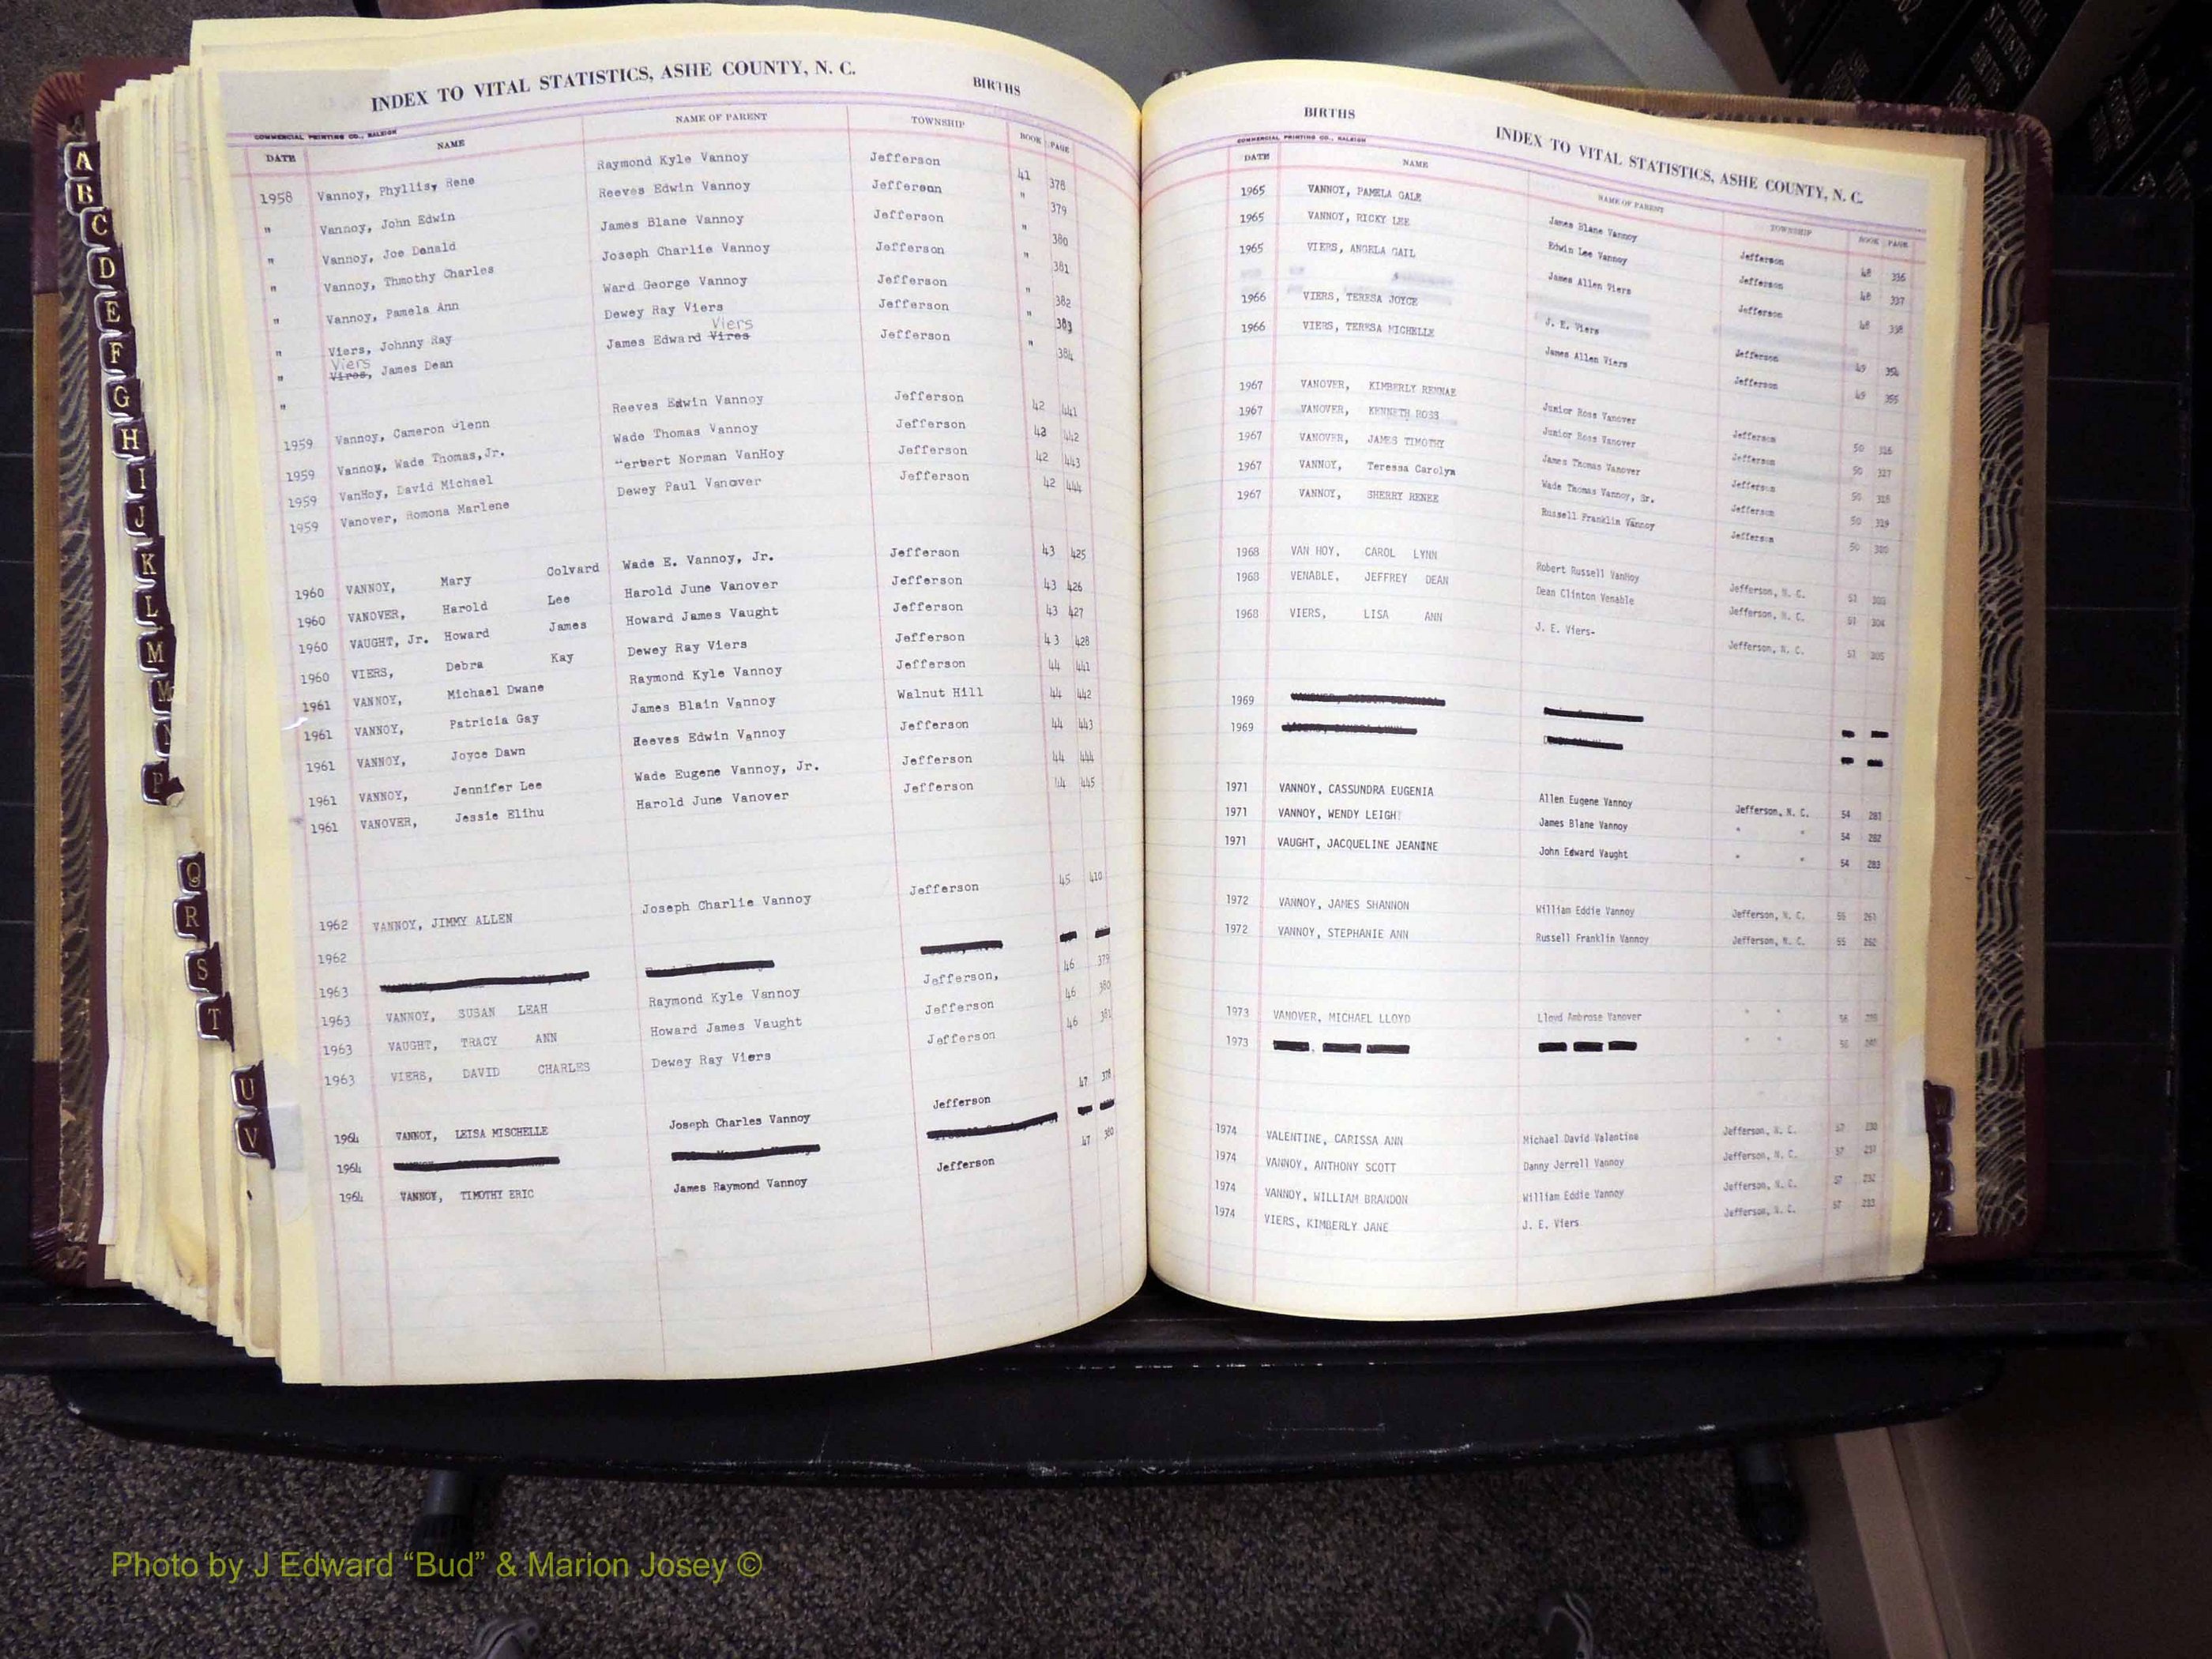 INDEX TO VITAL STATISTICS, ASHE COUNTY, N. C. BIRTHS
COMMERCIAL PRINTING CO., RALEIGH
DATE NAME NAME OF PARENT TOWNSHIP BOOK PAGE
1958 Vannoy, Phyllisy Rene Raymond Kyle Vannoy Jefferson 41 378
" Vannoy, John Edwin Reeves Edwin Vannoy Jefferson " 379
" Vannoy, Joe Donald James Blane Vannoy Jefferson " 380
" Vannoy, Thmothy Charles Joseph Charlie Vannoy Jefferson " 381
" Vannoy, Pamela Ann Ward George Vannoy Jefferson " 382
" Viers, Johnny Ray Dewey Ray Viers Jefferson " 383
Viers Viers
" Vires, James Dean James Edward Vires Jefferson " 384
"
1959 Vannoy, Cameron Glenn Reeves Edwin Vannoy Jefferson 42 441
1959 Vannoy, Wade Thomas, Jr. Wade Thomas Vannoy Jefferson 42 442
1959 VanHoy, David Michael "erbert Norman VanHoy Jefferson 42 443
1959 Vanover, Romona Marlene Dewey Paul Vanover Jefferson 42 444
1960 VANNOY, Mary Colvard Wade E. Vannoy, Jr. Jefferson 43 425
1960 VANOVER, Harold Lee Harold June Vanover Jefferson 43 426
1960 VAUGHT, Jr. Howard James Howard James Vaught Jefferson 43 427
1960 VIERS, Debra Kay Dewey Ray Viers Jefferson 43 428
1961 VANNOY, Michael Dwane Raymond Kyle Vannoy Jefferson 44 441
1961 VANNOY, Patricia Gay James Blain Vannoy Walnut Hill 44 442
1961 VANNOY, Joyce Dawn Reeves Edwin Vannoy Jefferson 44 443
1961 VANNOY, Jennifer Lee Wade Eugene Vannoy, Jr. Jefferson 44 444
1961 VANOVER, Jessie Elihu Harold June Vanover Jefferson 44 445
1962 VANNOY, JIMMY ALLEN Joseph Charlie Vannoy Jefferson 45 410
1962
1963
1963 VANNOY, SUSAN LEAH Raymond Kyle Vannoy Jefferson, 46 379
1963 VAUGHT, TRACY ANN Howard James Vaught Jefferson 46 380
1963 VIERS, DAVID CHARLES Dewey Ray Viers Jefferson 46 381
1964 VANNOY, LEISA MISCHELLE Joseph Charles Vannoy Jefferson 47 378
1964
1964 VANNOY, TIMOTHY ERIC James Raymond Vannoy Jefferson 47 380
BIRTHS INDEX TO VITAL STATISTICS, ASHE COUNTY, N. C.
COMMERCIAL PRINTING CO., RALEIGH
DATE NAME NAME OF PARENT TOWNSHIP BOOK PAGE
1965 VANNOY, PAMELA GALE James Blane Vannoy Jefferson 48 336
1965 VANNOY, RICKY LEE Edwin Lee Vannoy Jefferson 48 337
1965 VIERS, ANGELA GAIL James Allen Viers Jefferson 48 338
1966 VIERS, TERESA JOYCE J. E. Viers Jefferson 49 354
1966 VIERS, TERESA MICHELLE James Allen Viers Jefferson 49 355
1967 VANOVER, KIMBERLY RENNAE Junior Ross Vanover Jefferson 50 316
1967 VANOVER, KENNETH ROSS Junior Ross Vanover Jefferson 50 317
1967 VANOVER, JAMES TIMOTHY James Thomas Vanover Jefferson 50 318
1967 VANNOY, Teressa Carolyn Wade Thomas Vannoy, Sr. Jefferson 50 319
1967 VANNOY, SHERRY RENEE Russell Franklin Vannoy Jefferson 50
1968 VAN HOY, CAROL LYNN Robert Russell VanHoy Jefferson, N. C. 51 303
1968 VENABLE, JEFFREY DEAN Dean Clinton Venable Jefferson, N. C. 51 304
1968 VIERS, LISA ANN J. E. Viers- Jefferson, N. C. 51 305
1969
1969
1971 VANNOY, CASSUNDRA EUGENIA Allen Eugene Vannoy Jefferson, N. C. 54 281
1971 VANNOY, WENDY LEIGH James Blane Vannoy " " 54 282
1971 VAUGHT, JACQUELINE JEANINE John Edward Vaught " " 54 283
1972 VANNOY, JAMES SHANNON William Eddie Vannoy Jefferson, N. C. 55 261
1972 VANNOY, STEPHANIE ANN Russell Franklin Vannoy Jefferson, N. C. 55 262
1973 VANOVER, MICHAEL LLOYD Lloyd Ambrose Vanover " " 56
1973 " " 56
1974 VALENTINE, CARISSA ANN Michael David Valentine Jefferson, N. C. 57 230
1974 VANNOY, ANTHONY SCOTT Danny Jerrell Vannoy Jefferson, N. C. 57 231
1974 VANNOY, WILLIAM BRANDON William Eddie Vannoy Jefferson, N. C. 57 232
1974 VIERS, KIMBERLY JANE J. E. Viers Jefferson, N. C. 57 233
A
B
C
D
E
F
G
H
I
J
K
L
M
N
P
Q
R
S
T
U
V
Photo by J Edward “Bud” & Marion Josey ©